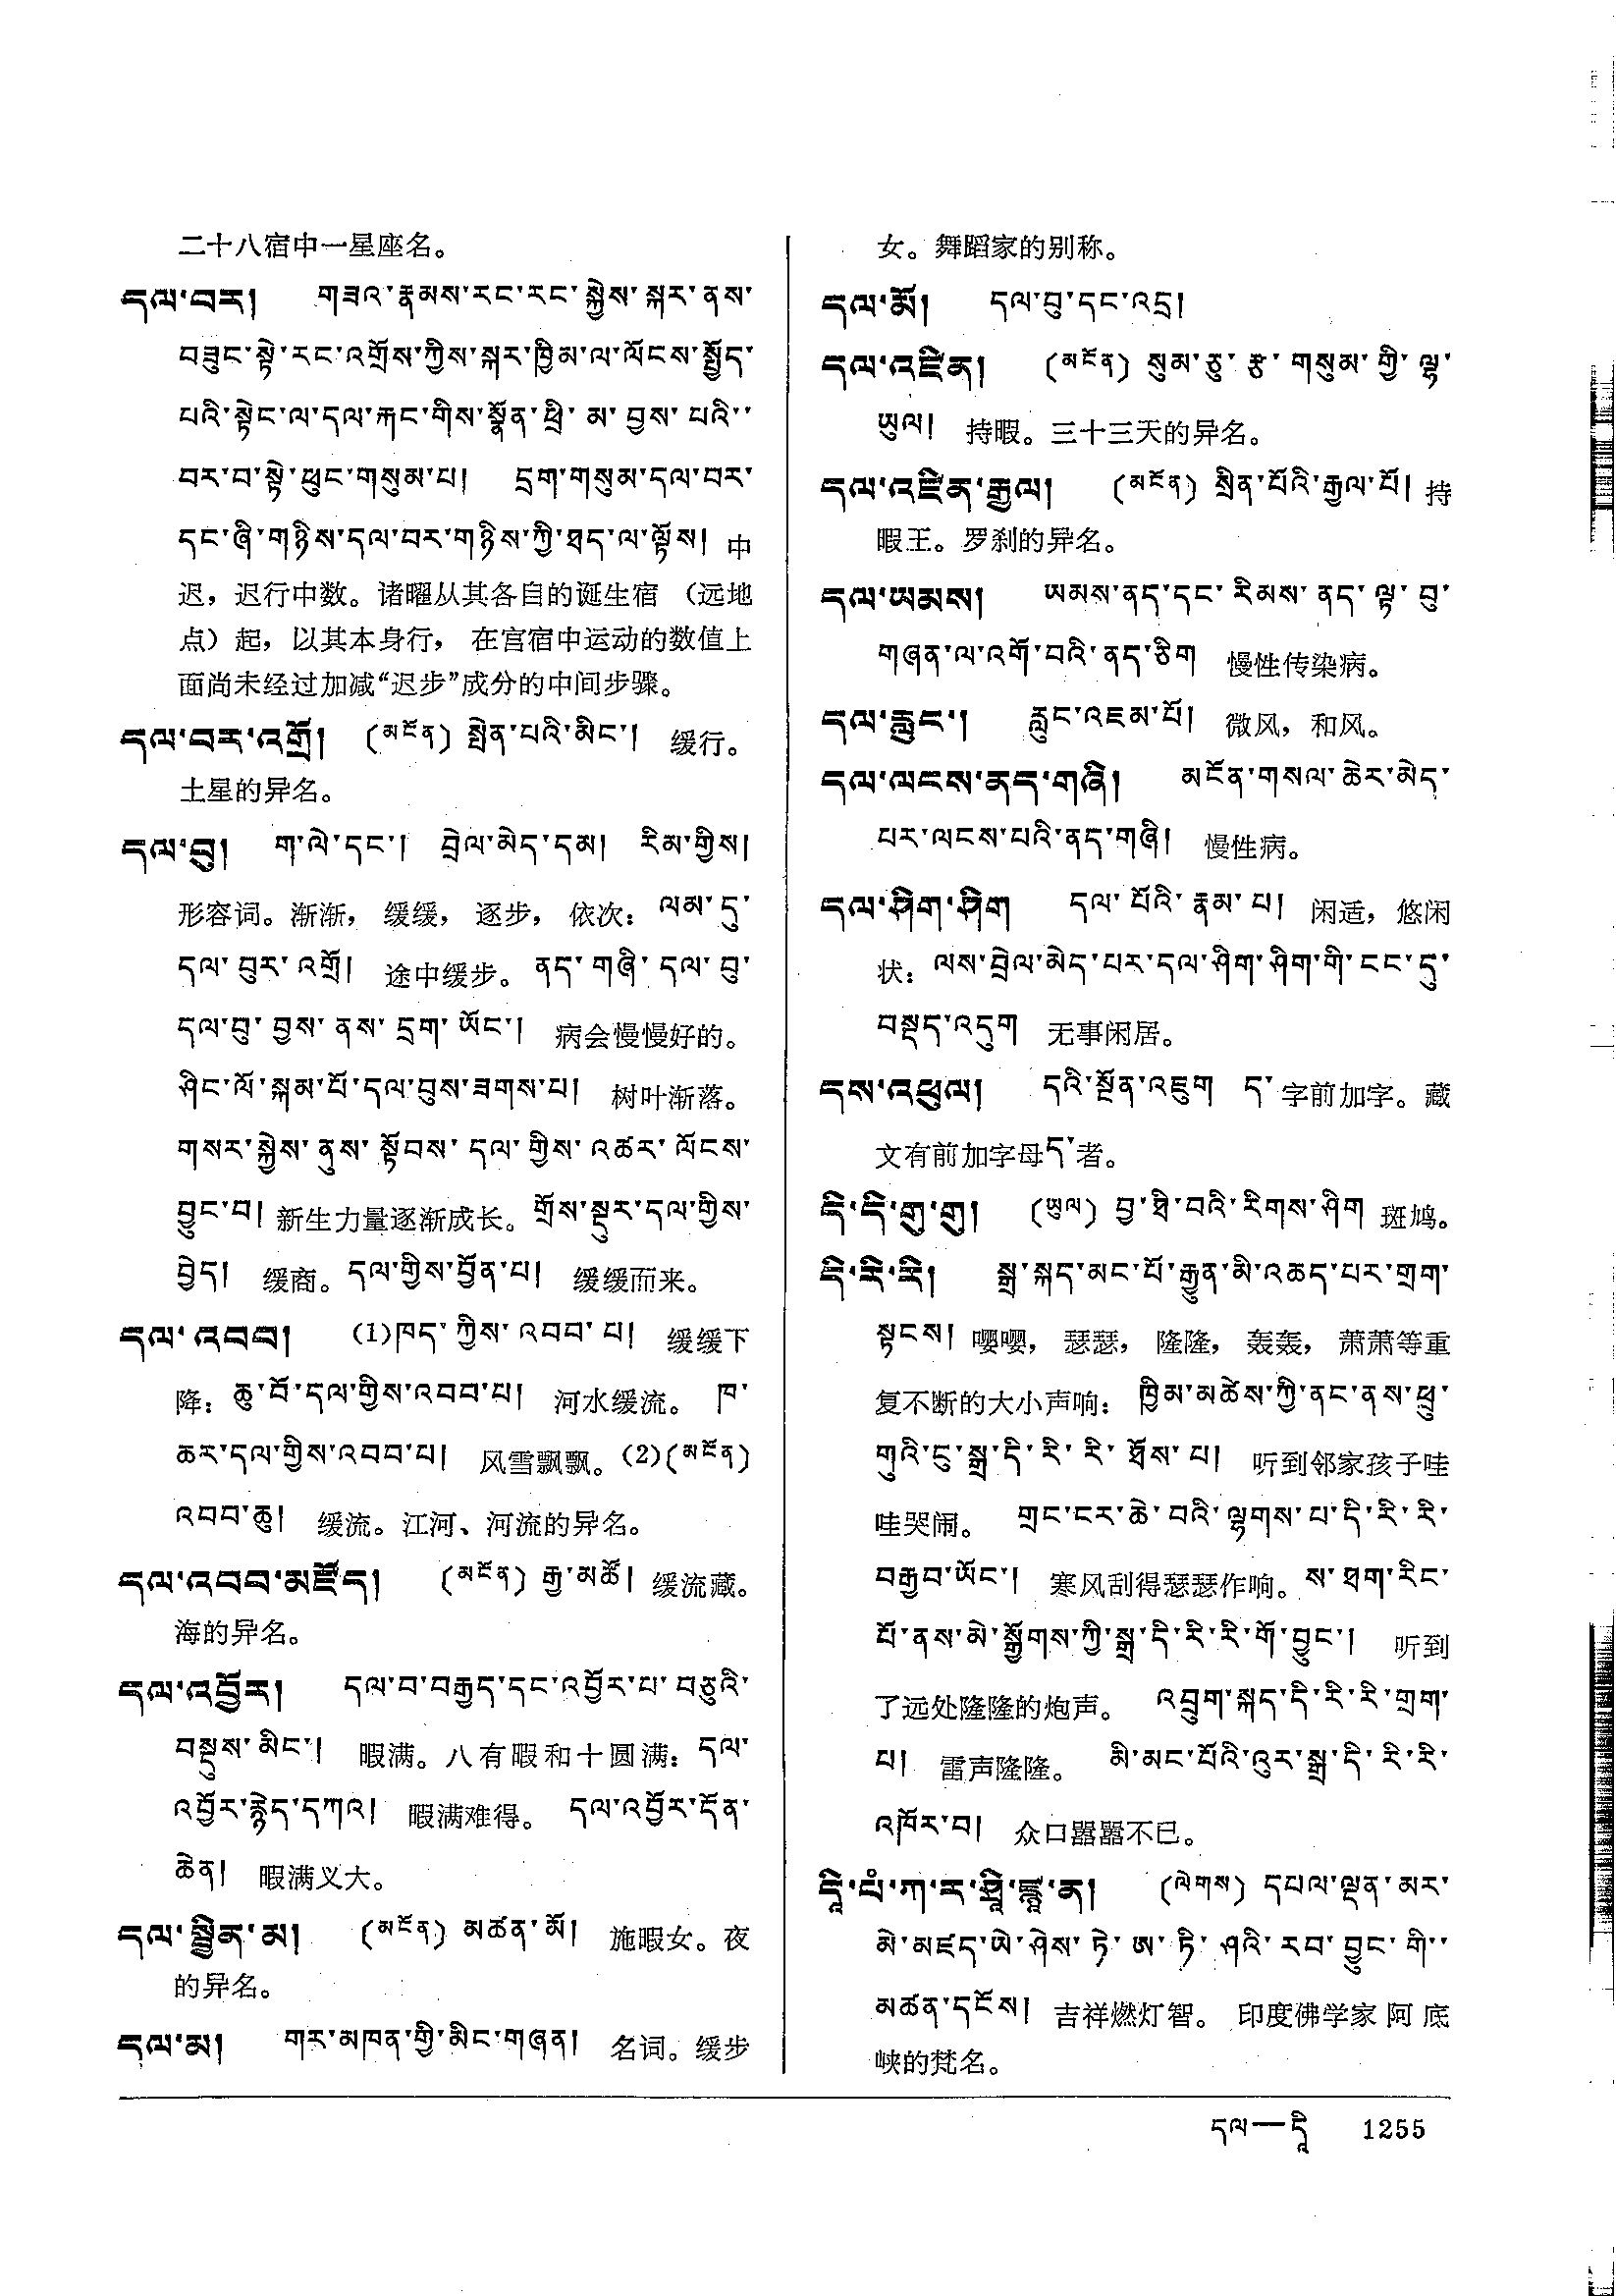 二十八宿中一星座名。
དལ་བར། གཟའ་རྣམས་རང་རང་སྐྱེས་སྐར་ནས་
བཟུང་སྟེ་རང་འགྲོས་ཀྱིས་སྐར་ཁྱིམ་ལ་ལོངས་སྤྱོད་
པའི་སྟེང་ལ་དལ་རྐང་གིས་སྣོན་ཕྲི་མ་བྱས་པའི་་
བར་བ་སྟེ་ཕུང་གསུམ་པ། དྲག་གསུམ་དལ་བར་
དང་ཞི་གཉིས་དལ་བར་གཉིས་ཀྱི་ཐད་ལ་ལྟོས། 中
迟，迟行中数。诸曜从其各自的诞生宿（远地
点）起，以其本身行，在宫宿中运动的数值上
面尚未经过加减“迟步”成分的中间步骤。
དལ་བར་འགྲོ། (མངོན) སྤེན་པའི་མིང་། 缓行。
土星的异名。
དལ་བུ། ག་ལེ་དང་། བྲེལ་མེད་དམ། རིམ་གྱིས།
形容词。渐渐，缓缓，逐步，依次：ལམ་དུ་
དལ་བུར་འགྲོ། 途中缓步。ནད་གཞི་དལ་བུ་
དལ་བུ་བྱས་ནས་དྲག་ཡོང་། 病会慢慢好的。
ཤིང་ལོ་སྐམ་པོ་དལ་བུས་ཟགས་པ། 树叶渐落。
གསར་སྐྱེས་ནུས་སྟོབས་དལ་གྱིས་འཚར་ལོངས་
བྱུང་བ། 新生力量逐渐成长。གྲོས་སྡུར་དལ་གྱིས་
བྱེད། 缓商。དལ་གྱིས་བྱོན་པ། 缓缓而来。
དལ་འབབ། (1)ཁད་ཀྱིས་འབབ་པ། 缓缓下
降：ཆུ་བོ་དལ་གྱིས་འབབ་པ། 河水缓流。ཁ་
ཆར་དལ་གྱིས་འབབ་པ། 风雪飘飘。(2)(མངོན)
འབབ་ཆུ། 缓流。江河、河流的异名。
དལ་འབབ་མཛོད། (མངོན) རྒྱ་མཚོ། 缓流藏。
海的异名。
དལ་འབྱོར། དལ་བ་བརྒྱད་དང་འབྱོར་པ་བཅུའི་
བསྡུས་མིང་། 暇满。八有暇和十圆满：དལ་
འབྱོར་རྙེད་དཀའ། 暇满难得。དལ་འབྱོར་དོན་
ཆེན། 暇满义大。
དལ་སྦྱིན་མ། (མངོན) མཚན་མོ། 施暇女。夜
的异名。
དལ་མ། གར་མཁན་གྱི་མིང་གཞན། 名词。缓步
女。舞蹈家的别称。
དལ་མོ། དལ་བུ་དང་འདྲ།
དལ་འཛིན། (མངོན) སུམ་ཅུ་རྩ་གསུམ་གྱི་ལྷ་
ཡུལ། 持暇。三十三天的异名。
དལ་འཛིན་རྒྱལ། (མངོན) སྲིན་པོའི་རྒྱལ་པོ། 持
暇王。罗刹的异名。
དལ་ཡམས། ཡམས་ནད་དང་རིམས་ནད་ལྟ་བུ་
གཞན་ལ་འགོ་བའི་ནད་ཅིག 慢性传染病。
དལ་རླུང་། རླུང་འཇམ་པོ། 微风，和风。
དལ་ལངས་ནད་གཞི། མངོན་གསལ་ཆེར་མེད་
པར་ལངས་པའི་ནད་གཞི། 慢性病。
དལ་ཤིག་ཤིག དལ་པོའི་རྣམ་པ། 闲适，悠闲
状：ལས་བྲེལ་མེད་པར་དལ་ཤིག་ཤིག་གི་ངང་དུ་
བསྡད་འདུག 无事闲居。
དས་འཕུལ། དའི་སྔོན་འཇུག ད་字前加字。藏
文有前加字母ད་者。
དི་དི་གུ་གུ། (ཡུལ) བྱ་ཐི་བའི་རིགས་ཤིག 斑鸠。
དི་རི་རི། སྒྲ་སྐད་མང་པོ་རྒྱུན་མི་འཆད་པར་གྲག་
སྟངས། 嘤嘤，瑟瑟，隆隆，轰轰，萧萧等重
复不断的大小声响：ཁྱིམ་མཚེས་ཀྱི་ནང་ནས་ཕྲུ་
གུའི་ངུ་སྒྲ་དི་རི་རི་ཐོས་པ། 听到邻家孩子哇
哇哭闹。གྲང་ངར་ཆེ་བའི་ལྷགས་པ་དི་རི་རི་
བརྒྱབ་ཡོང་། 寒风刮得瑟瑟作响。ས་ཐག་རིང་
པོ་ནས་མེ་སྒྱོགས་ཀྱི་སྒྲ་དི་རི་རི་གོ་བྱུང་། 听到
了远处隆隆的炮声。འབྲུག་སྐད་དི་རི་རི་གྲག་
པ། 雷声隆隆。མི་མང་པོའི་འུར་སྒྲ་དི་རི་རི་
འཁོར་བ། 众口嚣嚣不已。
དཱི་པཾ་ཀ་ར་ཤྲཱི་ཛྙཱ་ན། (ལེགས) དཔལ་ལྡན་མར་
མེ་མཛད་ཡེ་ཤེས་ཏེ་ཨ་ཏི་ཤའི་རབ་བྱུང་གི་་
མཚན་དངོས། 吉祥燃灯智。印度佛学家阿底
峡的梵名。
དལ—དཱི 1255